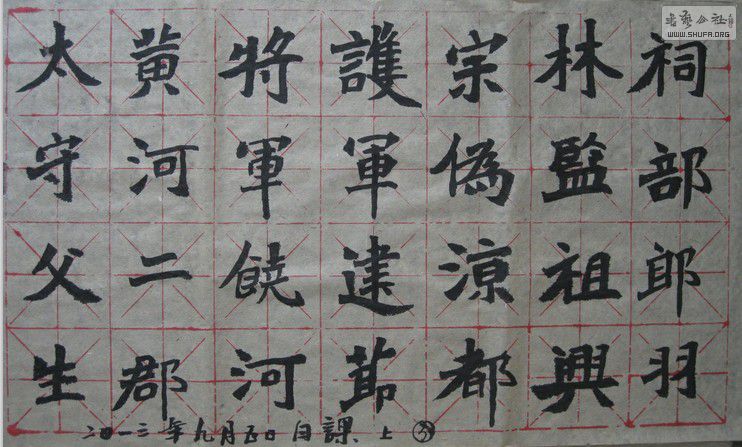 祠部郎羽
林監祖興
宗偽涼都
護軍建莭
將軍饒河
黃河二郡
太守父生
二0一三年九月五日 日課 上
书艺公社
WWW.SHUFA.ORG